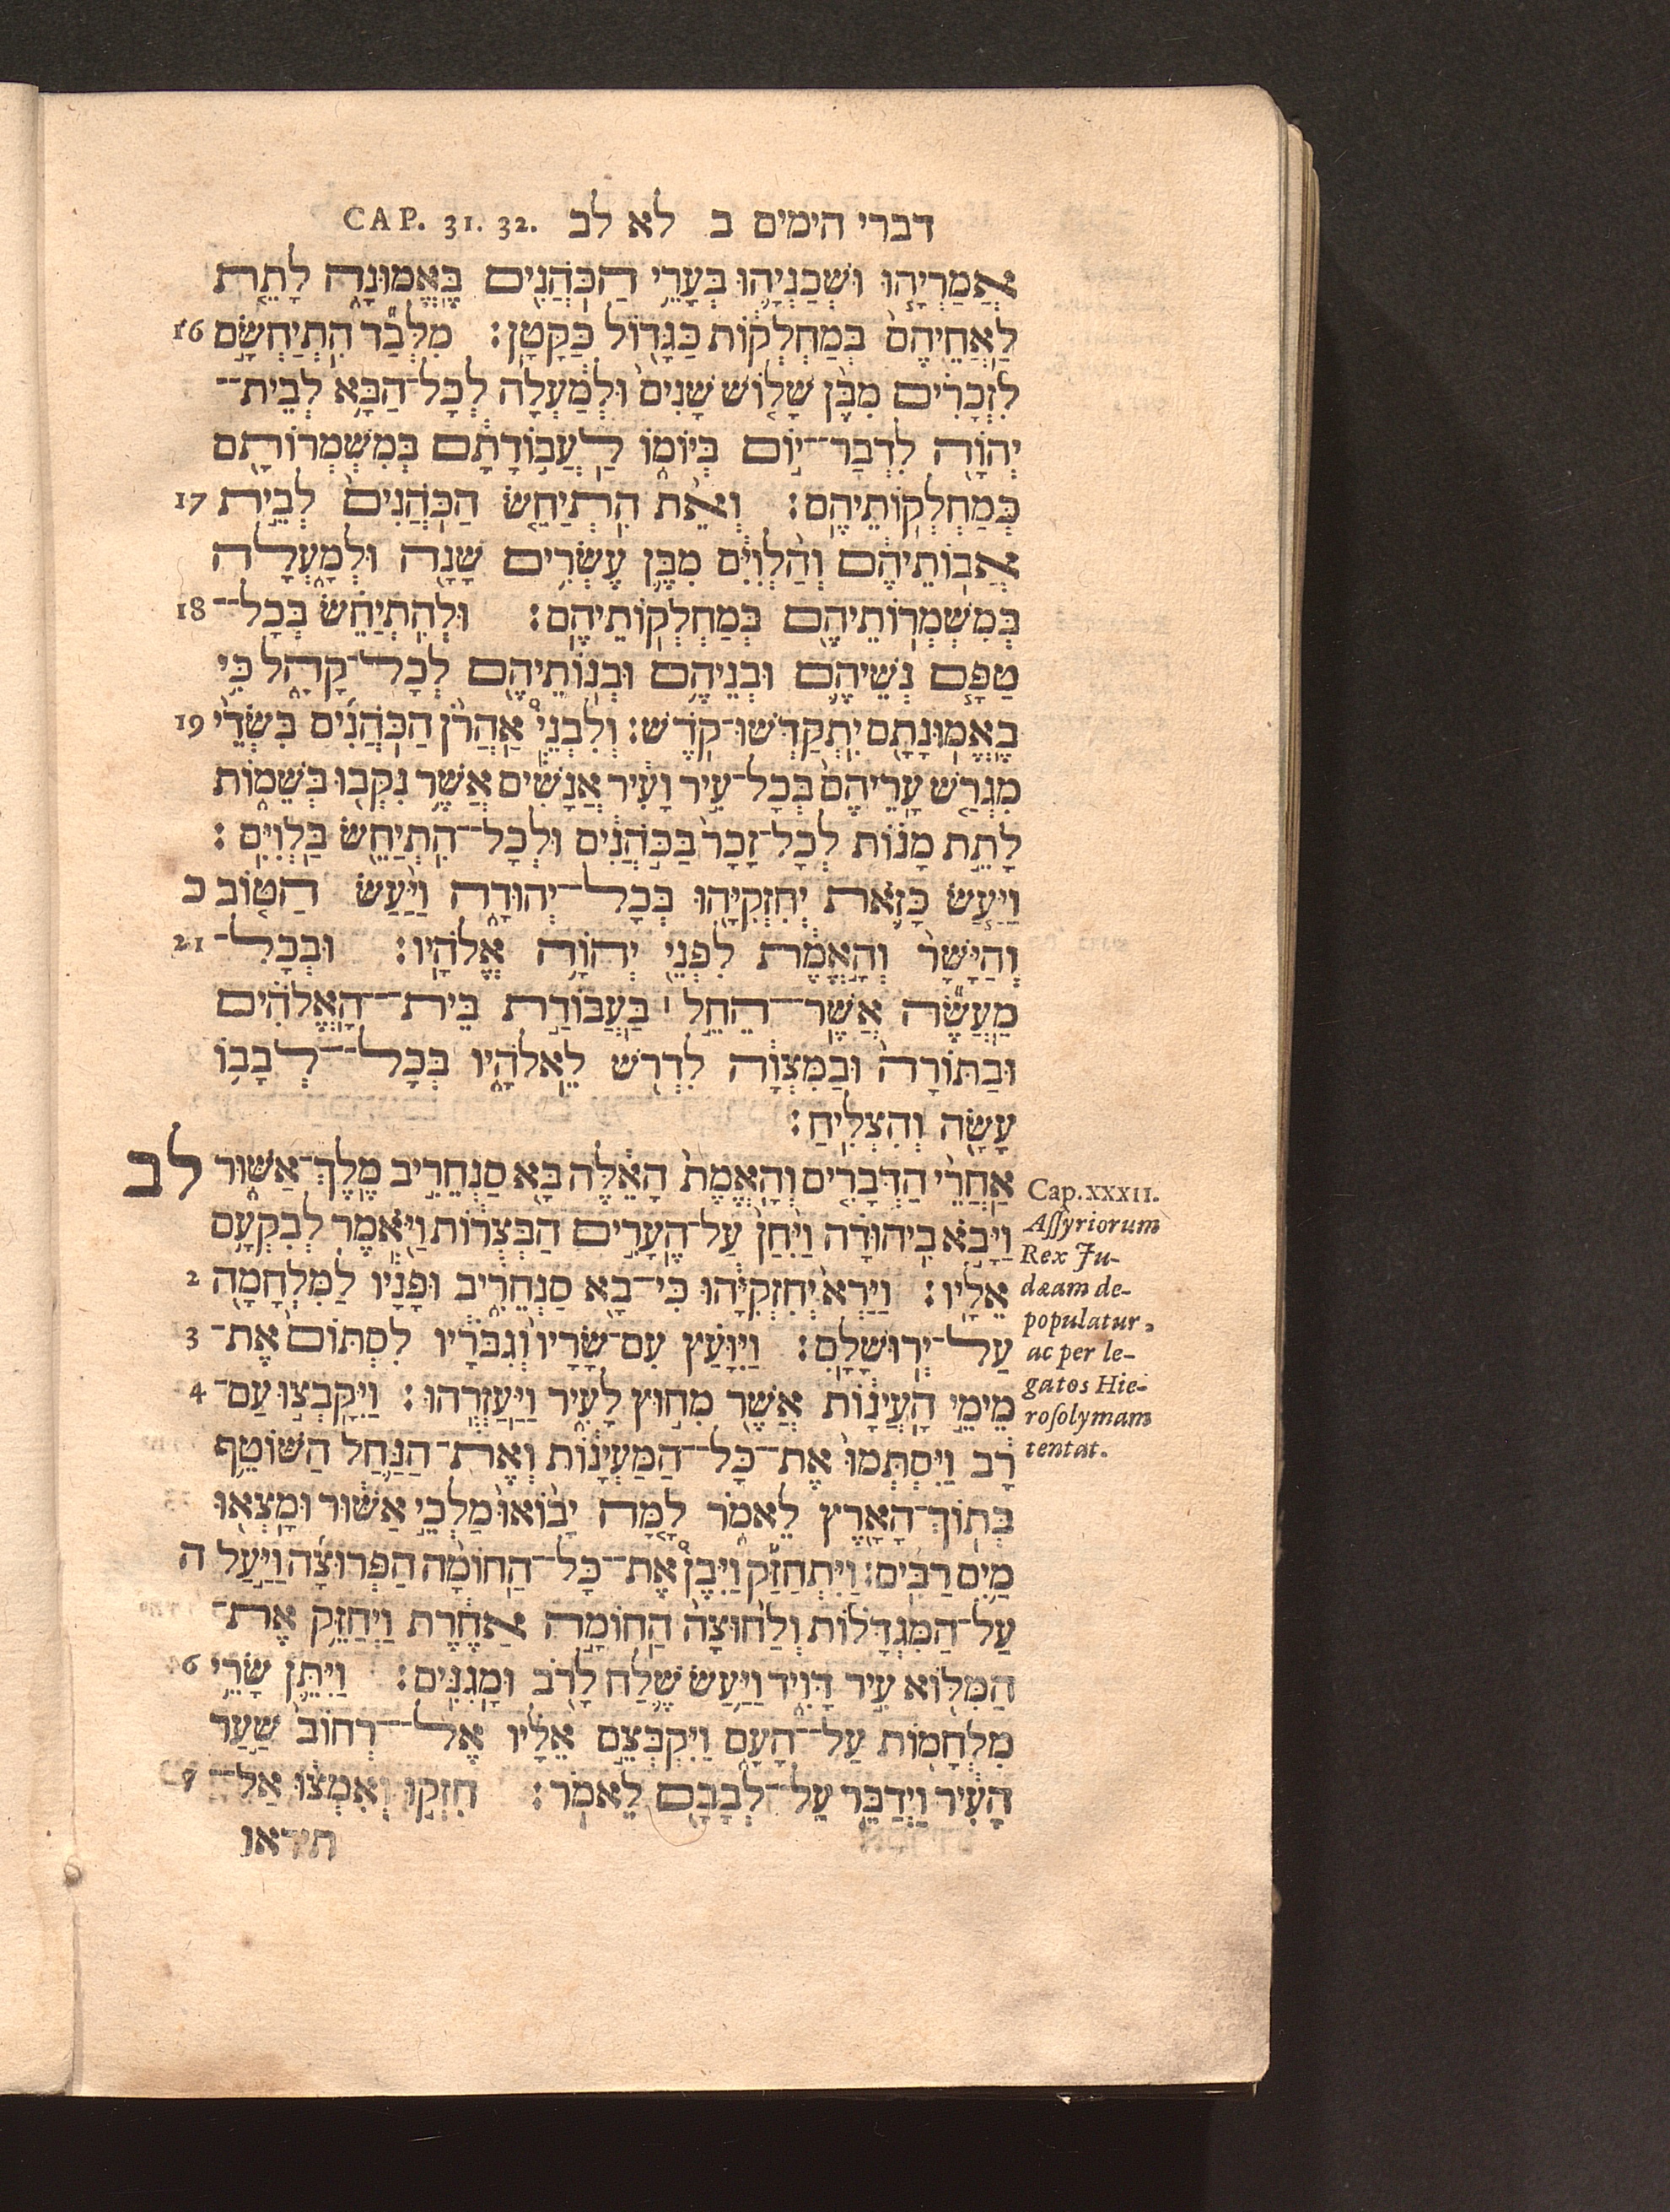 דברי הימים ב לא לב CAP. 31. 32.
אֲמַרְיָהוּ וּשְׁכַנְיָהוּ בְּעָרֵי הַכֹּהֲנִים בֶּאֱמוּנָה לָתֵת
לַאֲחֵיהֶם בְּמַחְלְקוֹת כַּגָּדוֹל כַּקָּטָן׃ מִלְּבַד הִתְיַחְשָׂם 16
לִזְכָרִים מִבֶּן שָׁלוֹשׁ שָׁנִים וּלְמַעְלָה לְכָל־הַבָּא לְבֵית־
יְהוָֹה לִדְבַר־יוֹם בְּיוֹמוֹ לַעֲבוֹדָתָם בְּמִשְׁמְרוֹתָם
כְּמַחְלְקוֹתֵיהֶם׃ וְאֵת הִתְיַחֵשׂ הַכֹּהֲנִים לְבֵית 17
אֲבוֹתֵיהֶם וְהַלְוִיִּם מִבֶּן עֶשְׂרִים שָׁנָה וּלְמָעְלָה
בְּמִשְׁמְרוֹתֵיהֶם בְּמַחְלְקוֹתֵיהֶם׃ וּלְהִתְיַחֵשׂ בְּכָל־ 18
טַפָּם נְשֵׁיהֶם וּבְנֵיהֶם וּבְנוֹתֵיהֶם לְכָל־קָהָל כִּי
בֶאֱמוּנָתָם יִתְקַדְּשׁוּ־קֹדֶשׁ׃ וְלִבְנֵי אַהֲרֹן הַכֹּהֲנִים בִּשְׂדֵי 19
מִגְרַשׁ עָרֵיהֶם בְּכָל־עִיר וָעִיר אֲנָשִׁים אֲשֶׁר נִקְּבוּ בְּשֵׁמוֹת
לָתֵת מָנוֹת לְכָל־זָכָר בַּכֹּהֲנִים וּלְכָל־הִתְיַחֵשׂ בַּלְוִיִּם׃
וַיַּעַשׂ כָּזֹאת יְחִזְקִיָּהוּ בְּכָל־יְהוּדָה וַיַּעַשׂ הַטּוֹב כ
וְהַיָּשָׁר וְהָאֱמֶת לִפְנֵי יְהוָֹה אֱלֹהָיו׃ וּבְכָל־ 21
מַעֲשֶׂה אֲשֶׁר־הֵחֵל ׀ בַּעֲבוֹדַת בֵּית־הָאֱלֹהִים
וּבַתּוֹרָה וּבַמִּצְוָה לִדְרֹשׁ לֵאלֹהָיו בְּכָל־לְבָבוֹ
עָשָׂה וְהִצְלִיחַ׃
אַחֲרֵי הַדְּבָרִים וְהָאֱמֶת הָאֵלֶּה בָּא סַנְחֵרִיב מֶלֶךְ־אַשּׁוּר לב
וַיָּבֹא בִיהוּדָה וַיִּחַן עַל־הֶעָרִים הַבְּצֻרוֹת וַיֹּאמֶר לְבִקְעָם
אֵלָיו׃ וַיַּרְא יְחִזְקִיָּהוּ כִּי־בָא סַנְחֵרִיב וּפָנָיו לַמִּלְחָמָה 2
עַל־יְרוּשָׁלִָם׃ וַיִּוָּעַץ עִם־שָׂרָיו וְגִבֹּרָיו לִסְתּוֹם אֶת־ 3
מֵימֵי הָעֲיָנוֹת אֲשֶׁר מִחוּץ לָעִיר וַיַּעְזְרֻהוּ׃ וַיִּקָּבְצוּ עַם־ 4
רָב וַיִּסְתְּמוּ אֶת־כָּל־הַמַּעְיָנוֹת וְאֶת־הַנַּחַל הַשּׁוֹטֵף
בְּתוֹךְ־הָאָרֶץ לֵאמֹר לָמָּה יָבוֹאוּ מַלְכֵי אַשּׁוּר וּמָצְאוּ
מַיִם רַבִּים׃ וַיִּתְחַזַּק וַיִּבֶן אֶת־כָּל־הַחוֹמָה הַפְּרוּצָה וַיַּעַל ה
עַל־הַמִּגְדָּלוֹת וְלַחוּצָה הַחוֹמָה אַחֶרֶת וַיְחַזֵּק אֶת־
הַמִּלּוֹא עִיר דָּוִיד וַיַּעַשׂ שֶׁלַח לָרֹב וּמָגִנִּים׃ וַיִּתֵּן שָׂרֵי 6
מִלְחָמוֹת עַל־הָעָם וַיִּקְבְּצֵם אֵלָיו אֶל־רְחוֹב שַׁעַר
הָעִיר וַיְדַבֵּר עַל־לְבָבָם לֵאמֹר׃ חִזְקוּ וְאִמְצוּ אַל־ 7
תיראו
Cap. XXXII.
Aſſyriorum
Rex Ju-
dæam de-
populatur,
ac per le-
gatos Hie-
roſolymam
tentat.